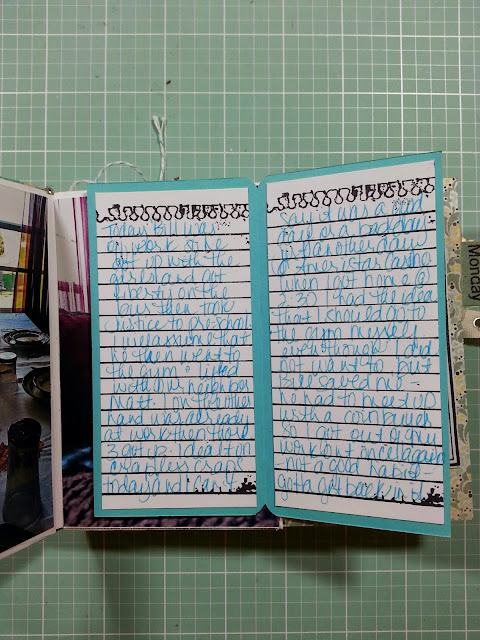 Today Bill was
off work so he
got up with the
girls and got
Liberty on the
bus then took
Justice to preschool.
I will assume that
he then went to
the gym & lifted
with our neighbor
Matt. I on the other
hand was already
at work then those
3 got up. I dealt on
as a craps
today and can't
say it was a good
day or a bad day
just another day
@ Ameristar Casino
When I got home @
2:30 I had the idea
that I should go to
the gym myself
even though I did
not want to, but
Bill saved me -
he had to meet up
with a coin buyer
so I got out of my
workout once again
- not a good habit -
gotta get back into
Monday